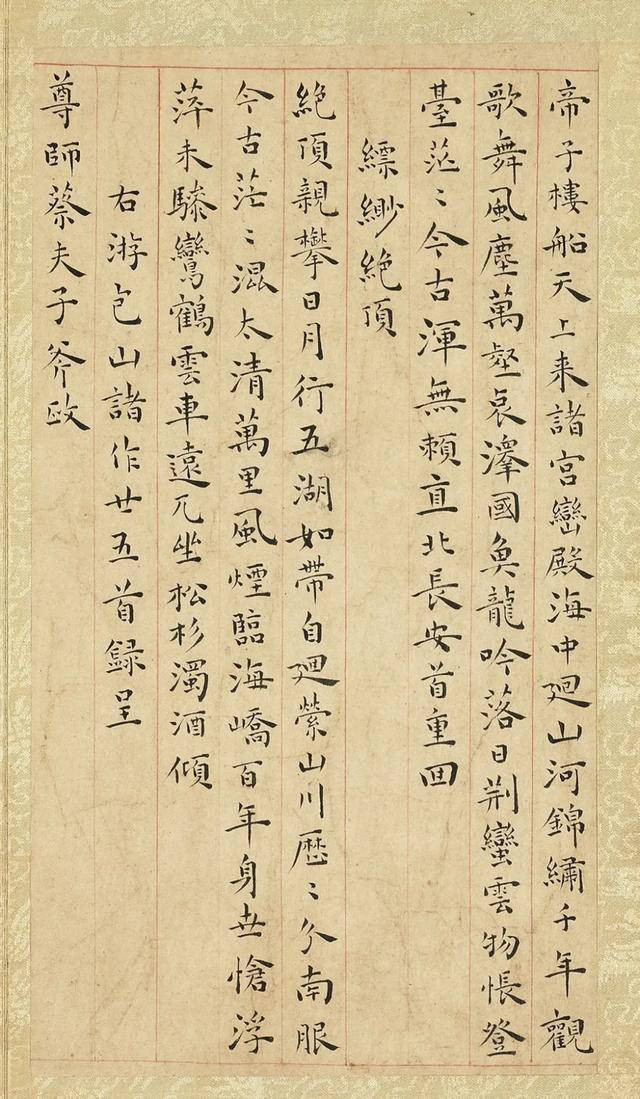 帝子樓船天上来諸宮巒殿海中廻山河錦繡千年觀
歌舞風塵萬壑哀澤國魚龍吟落日荆蠻雲物悵登
臺茫〻今古渾無賴直北長安首重回
縹緲絶頂
絶頂親攀日月行五湖如帶自廻縈山川歷〻分南服
今古茫〻混太清萬里風煙臨海嶠百年身世愴浮
萍未驂鸞鶴雲車遠兀坐松杉濁酒傾
右游包山諸作廿五首録呈
尊師蔡夫子斧政